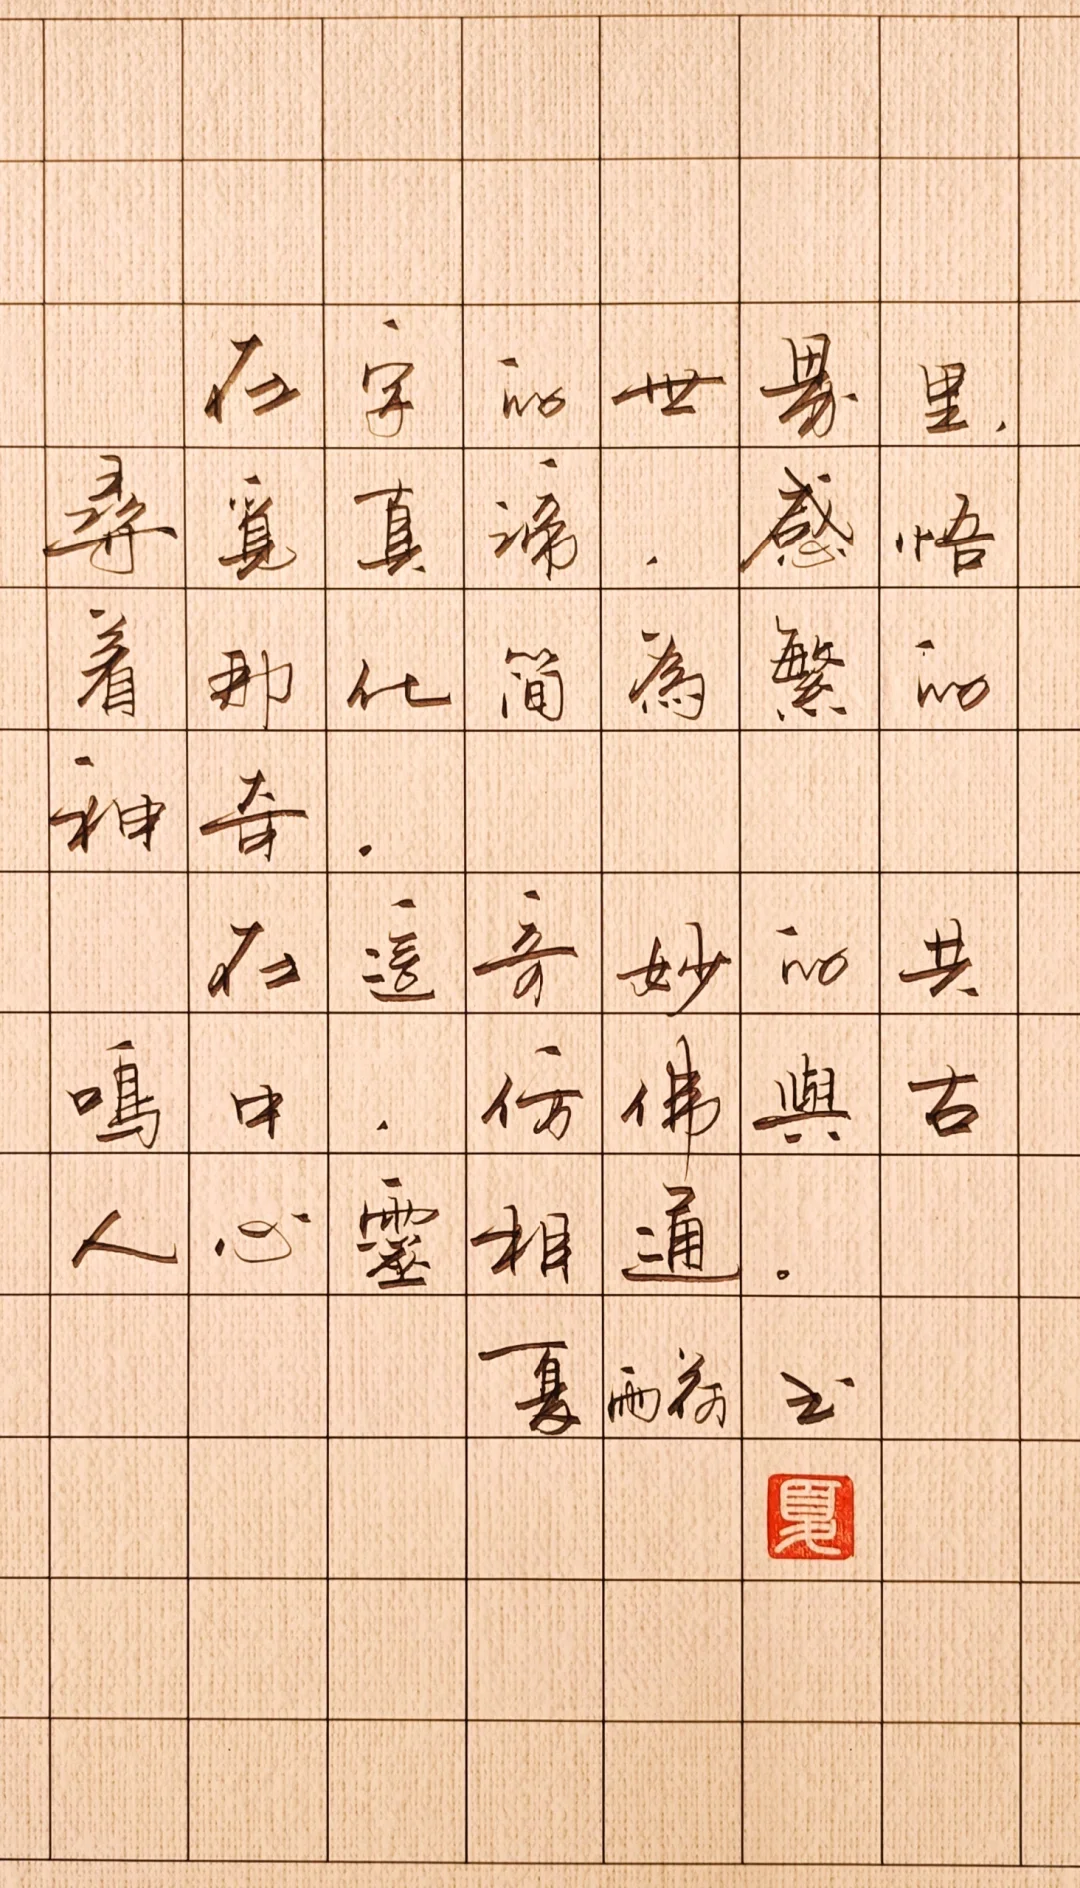 在字的世界里，
尋覓真諦，感悟
着那化简為繁的
神奇。
在這奇妙的共
鳴中，仿佛與古
人心靈相通。
夏雨荷书
夏